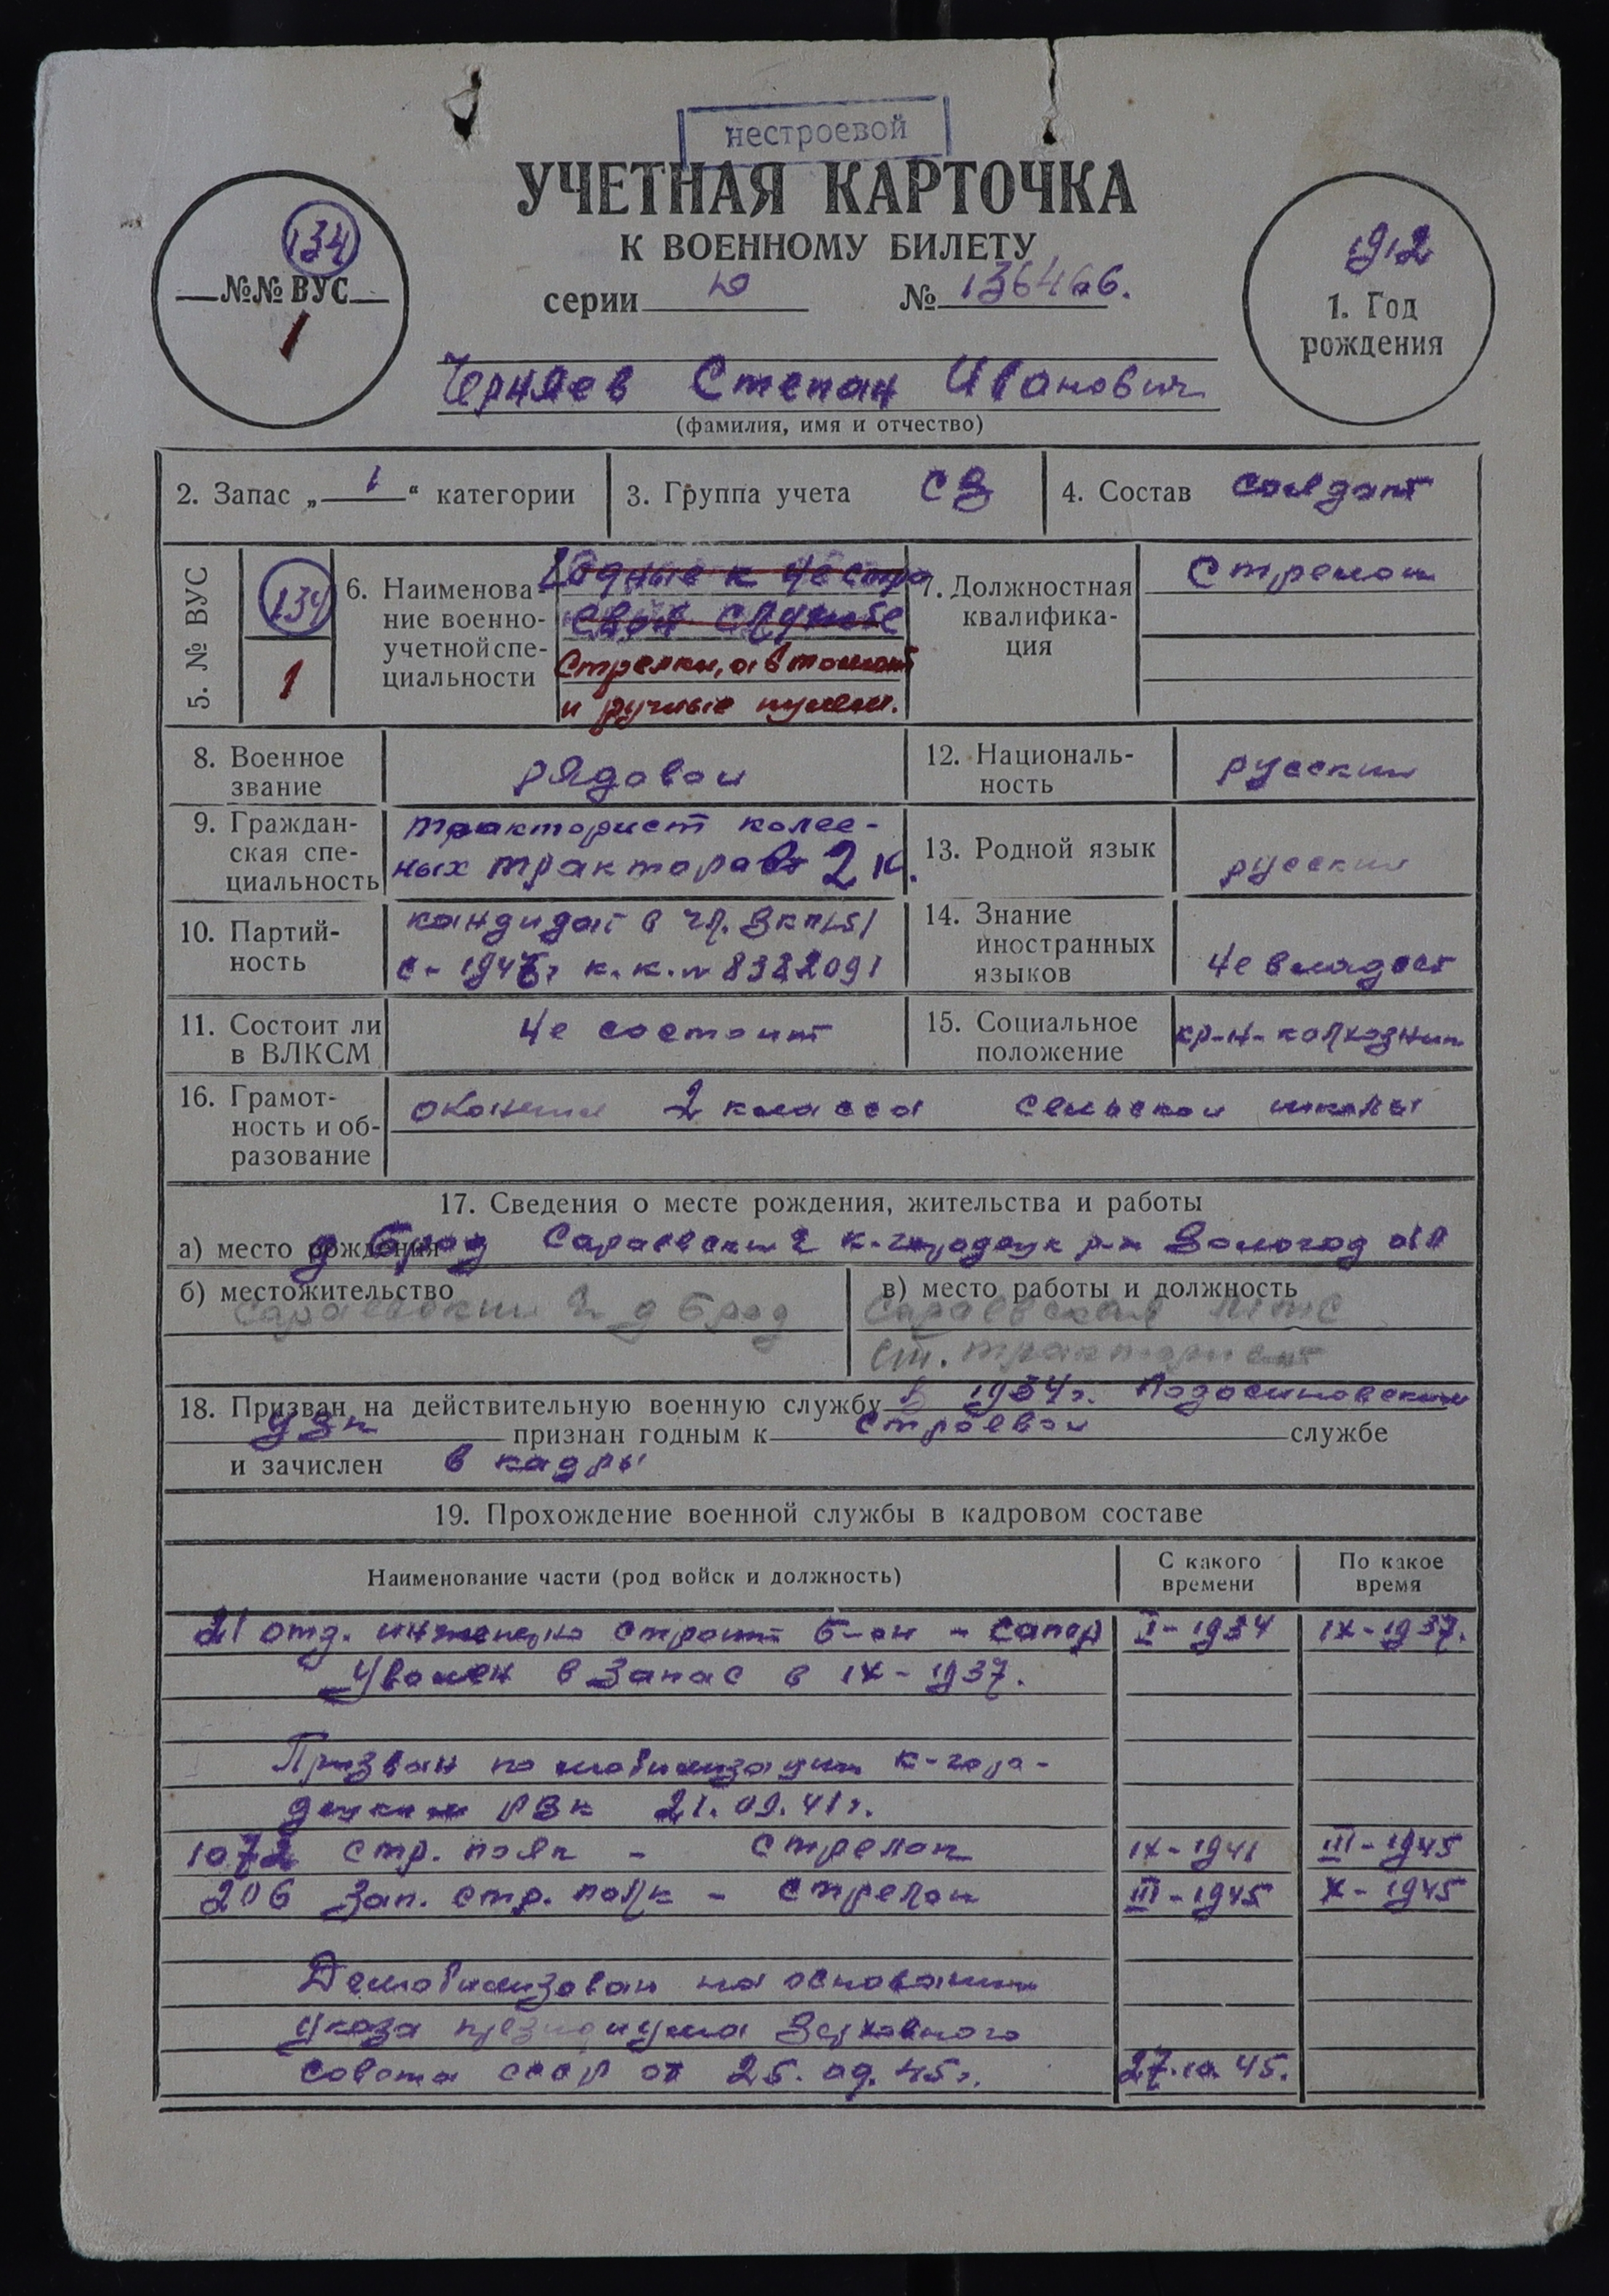 нестроевой
УЧЕТНАЯ КАРТОЧКА
К ВОЕННОМУ БИЛЕТУ
серии Ю № 136466.
134
№№ ВУС
1
1912
1. Год
рождения
Черняев Степан Иванович
(фамилия, имя и отчество)
2. Запас „ 1 “ категории
3. Группа учета СВ
4. Состав солдат
5. № ВУС
134
1
6. Наименова-
ние военно-
учетной спе-
циальности
Годные к нестро
евой службе
Стрелки, автомат
и ручные пулем.
7. Должностная
квалифика-
ция
Стрелок
8. Военное
звание
рядовой
9. Граждан-
ская спе-
циальность
тракторист колес-
ных тракторов 2 к.
10. Партий-
ность
кандидат в чл. ВКП(б)
к. к. №
11. Состоит ли
в ВЛКСМ
не состоит
12. Националь-
ность
русский
13. Родной язык
русский
14. Знание
иностранных
языков
не владеет
15. Социальное
положение
кр-н-колхозник
16. Грамот-
ность и об-
разование
окончил 2 класса сельской школы
17. Сведения о месте рождения, жительства и работы
а) место рождения д Брод Сараевский к-городецк р-н Вологод обл
б) местожительство
Сараевский д Брод
в) место работы и должность
Сараевская МТС
ст. тракторист
18. Призван на действительную военную службу в 1934г. Подосиновским
признан годным к строевой службе
и зачислен в кадры
19. Прохождение военной службы в кадровом составе
Наименование части (род войск и должность)
С какого
времени
По какое
время
21 отд. инженерно строит б-он - сапер I-1934 IX-1937.
Уволен в запас в IX-1937.
Призван по мобилизации к-горо-
децким РВК 21.09.41г.
1072 стр. полк - стрелок IX-1941 III-1945
206 Зап. стр. полк - стрелок III-1945 X-1945
Демобилизован на основании
указа президиума Верховного
совета СССР от 25.09.45г. 27.10.45.